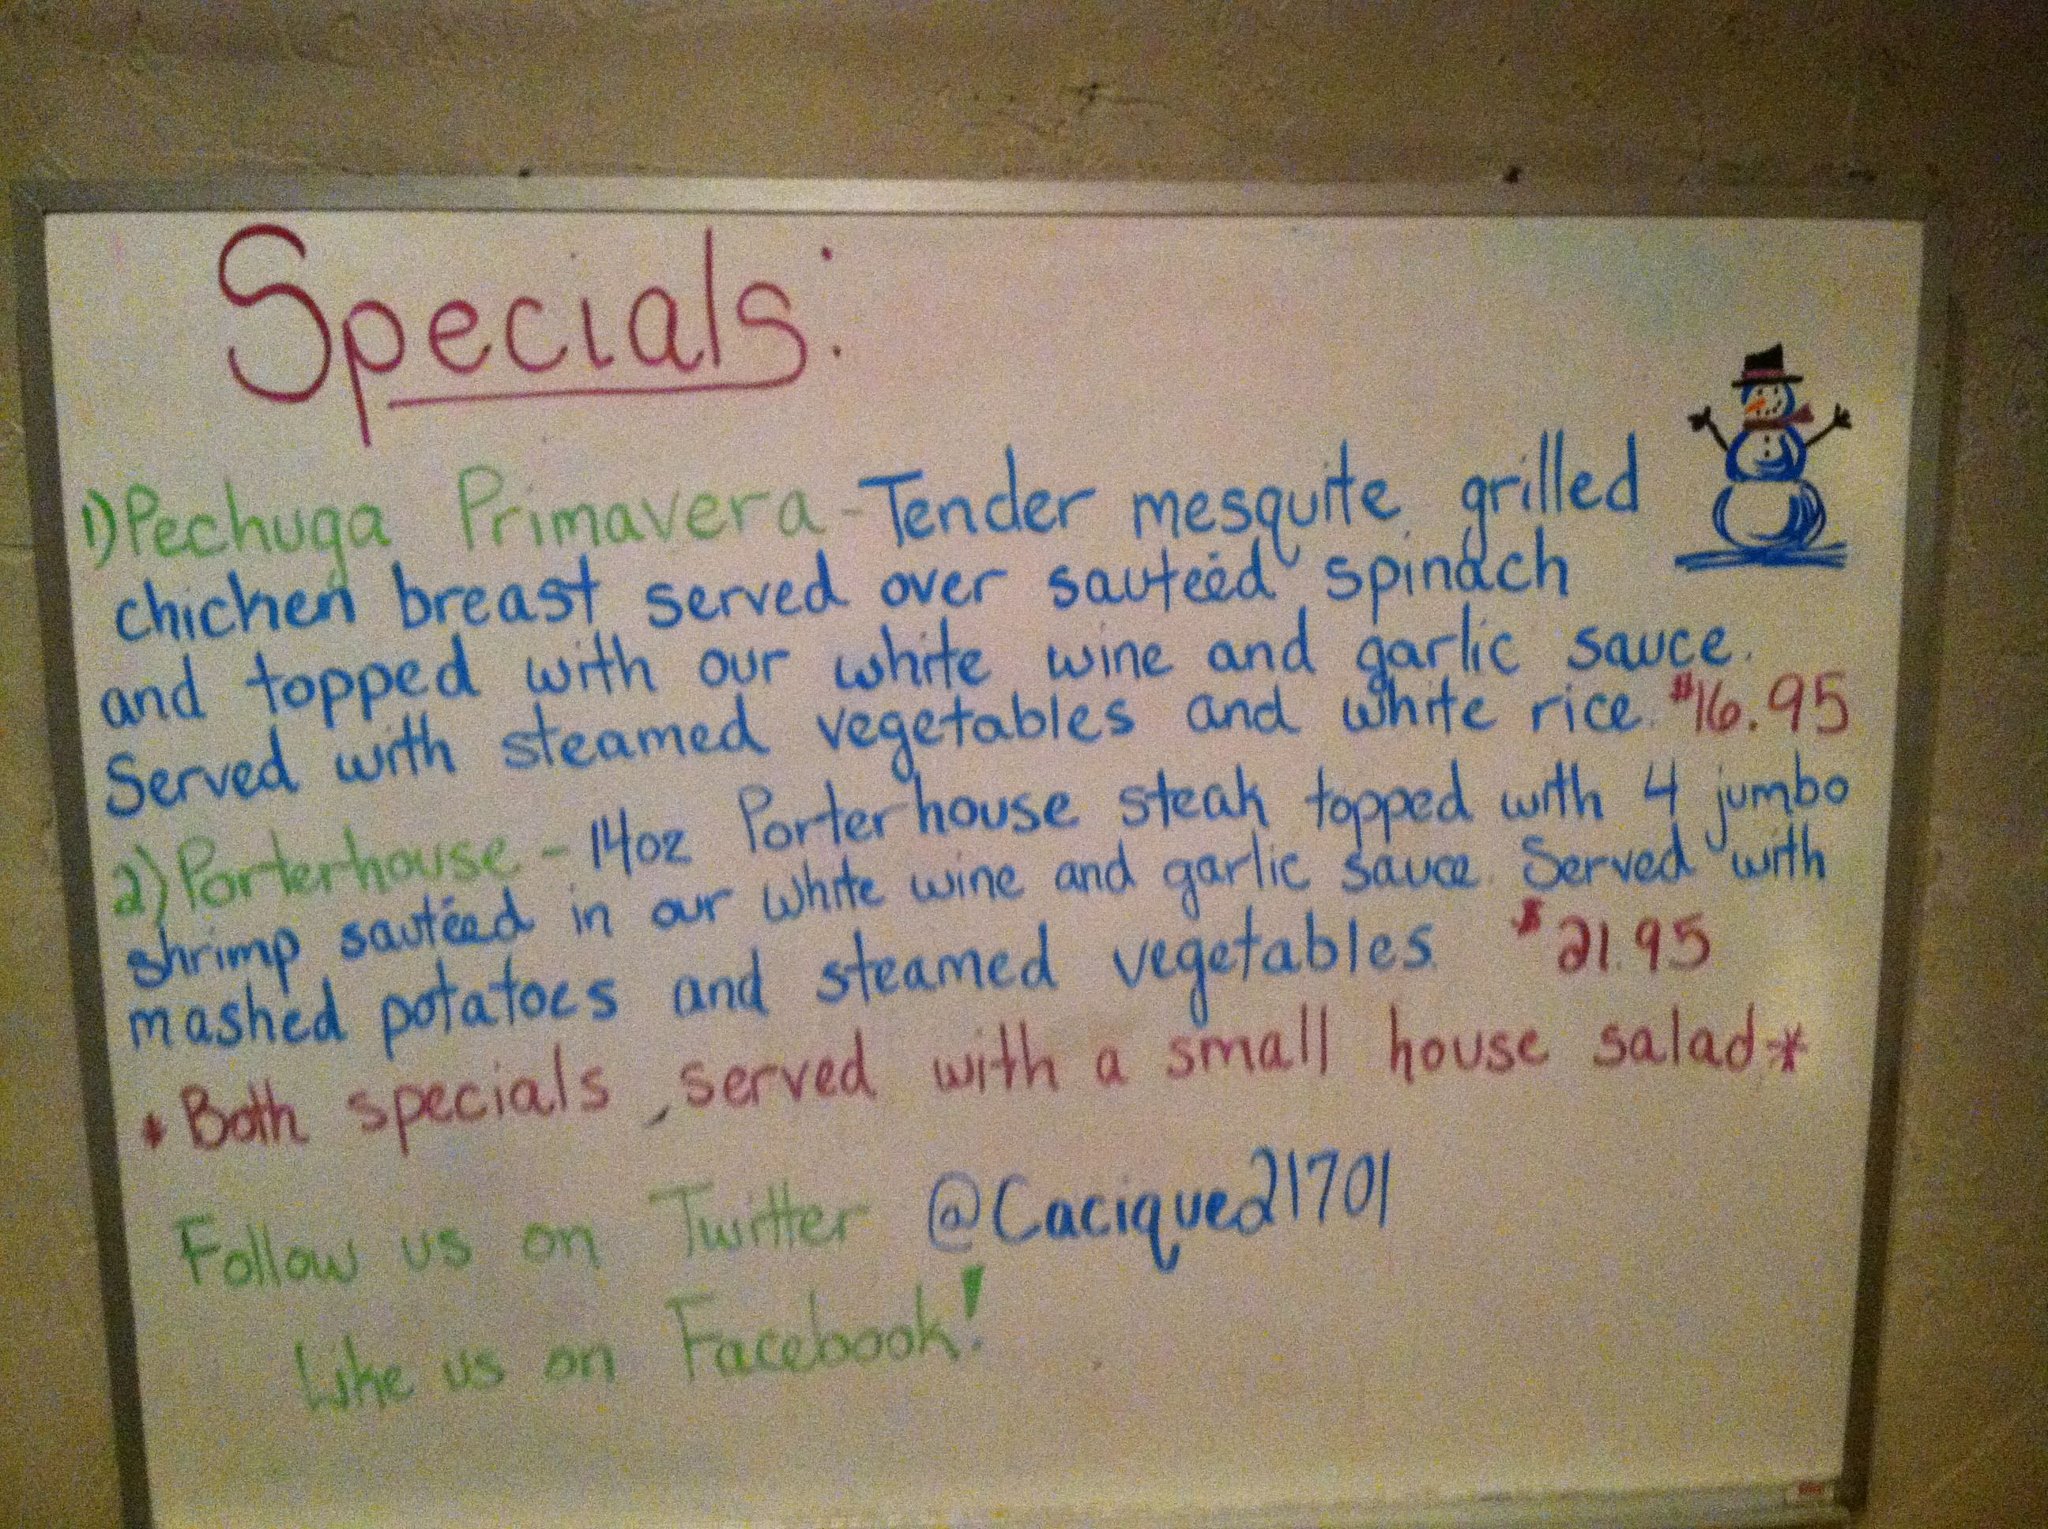 Specials:
1) Pechuga Primavera - Tender mesquite grilled
chicken breast served over sauteéd spinach
and topped with our white wine and garlic sauce.
Served with steamed vegetables and white rice. $16.95
2) Porterhouse - 14oz Porterhouse steak topped with 4 jumbo
shrimp sautéed in our white wine and garlic sauce. Served with
mashed potatoes and steamed vegetables. $21.95
* Both specials, served with a small house salad *
Follow us on Twitter @Cacique21701
Like us on Facebook!